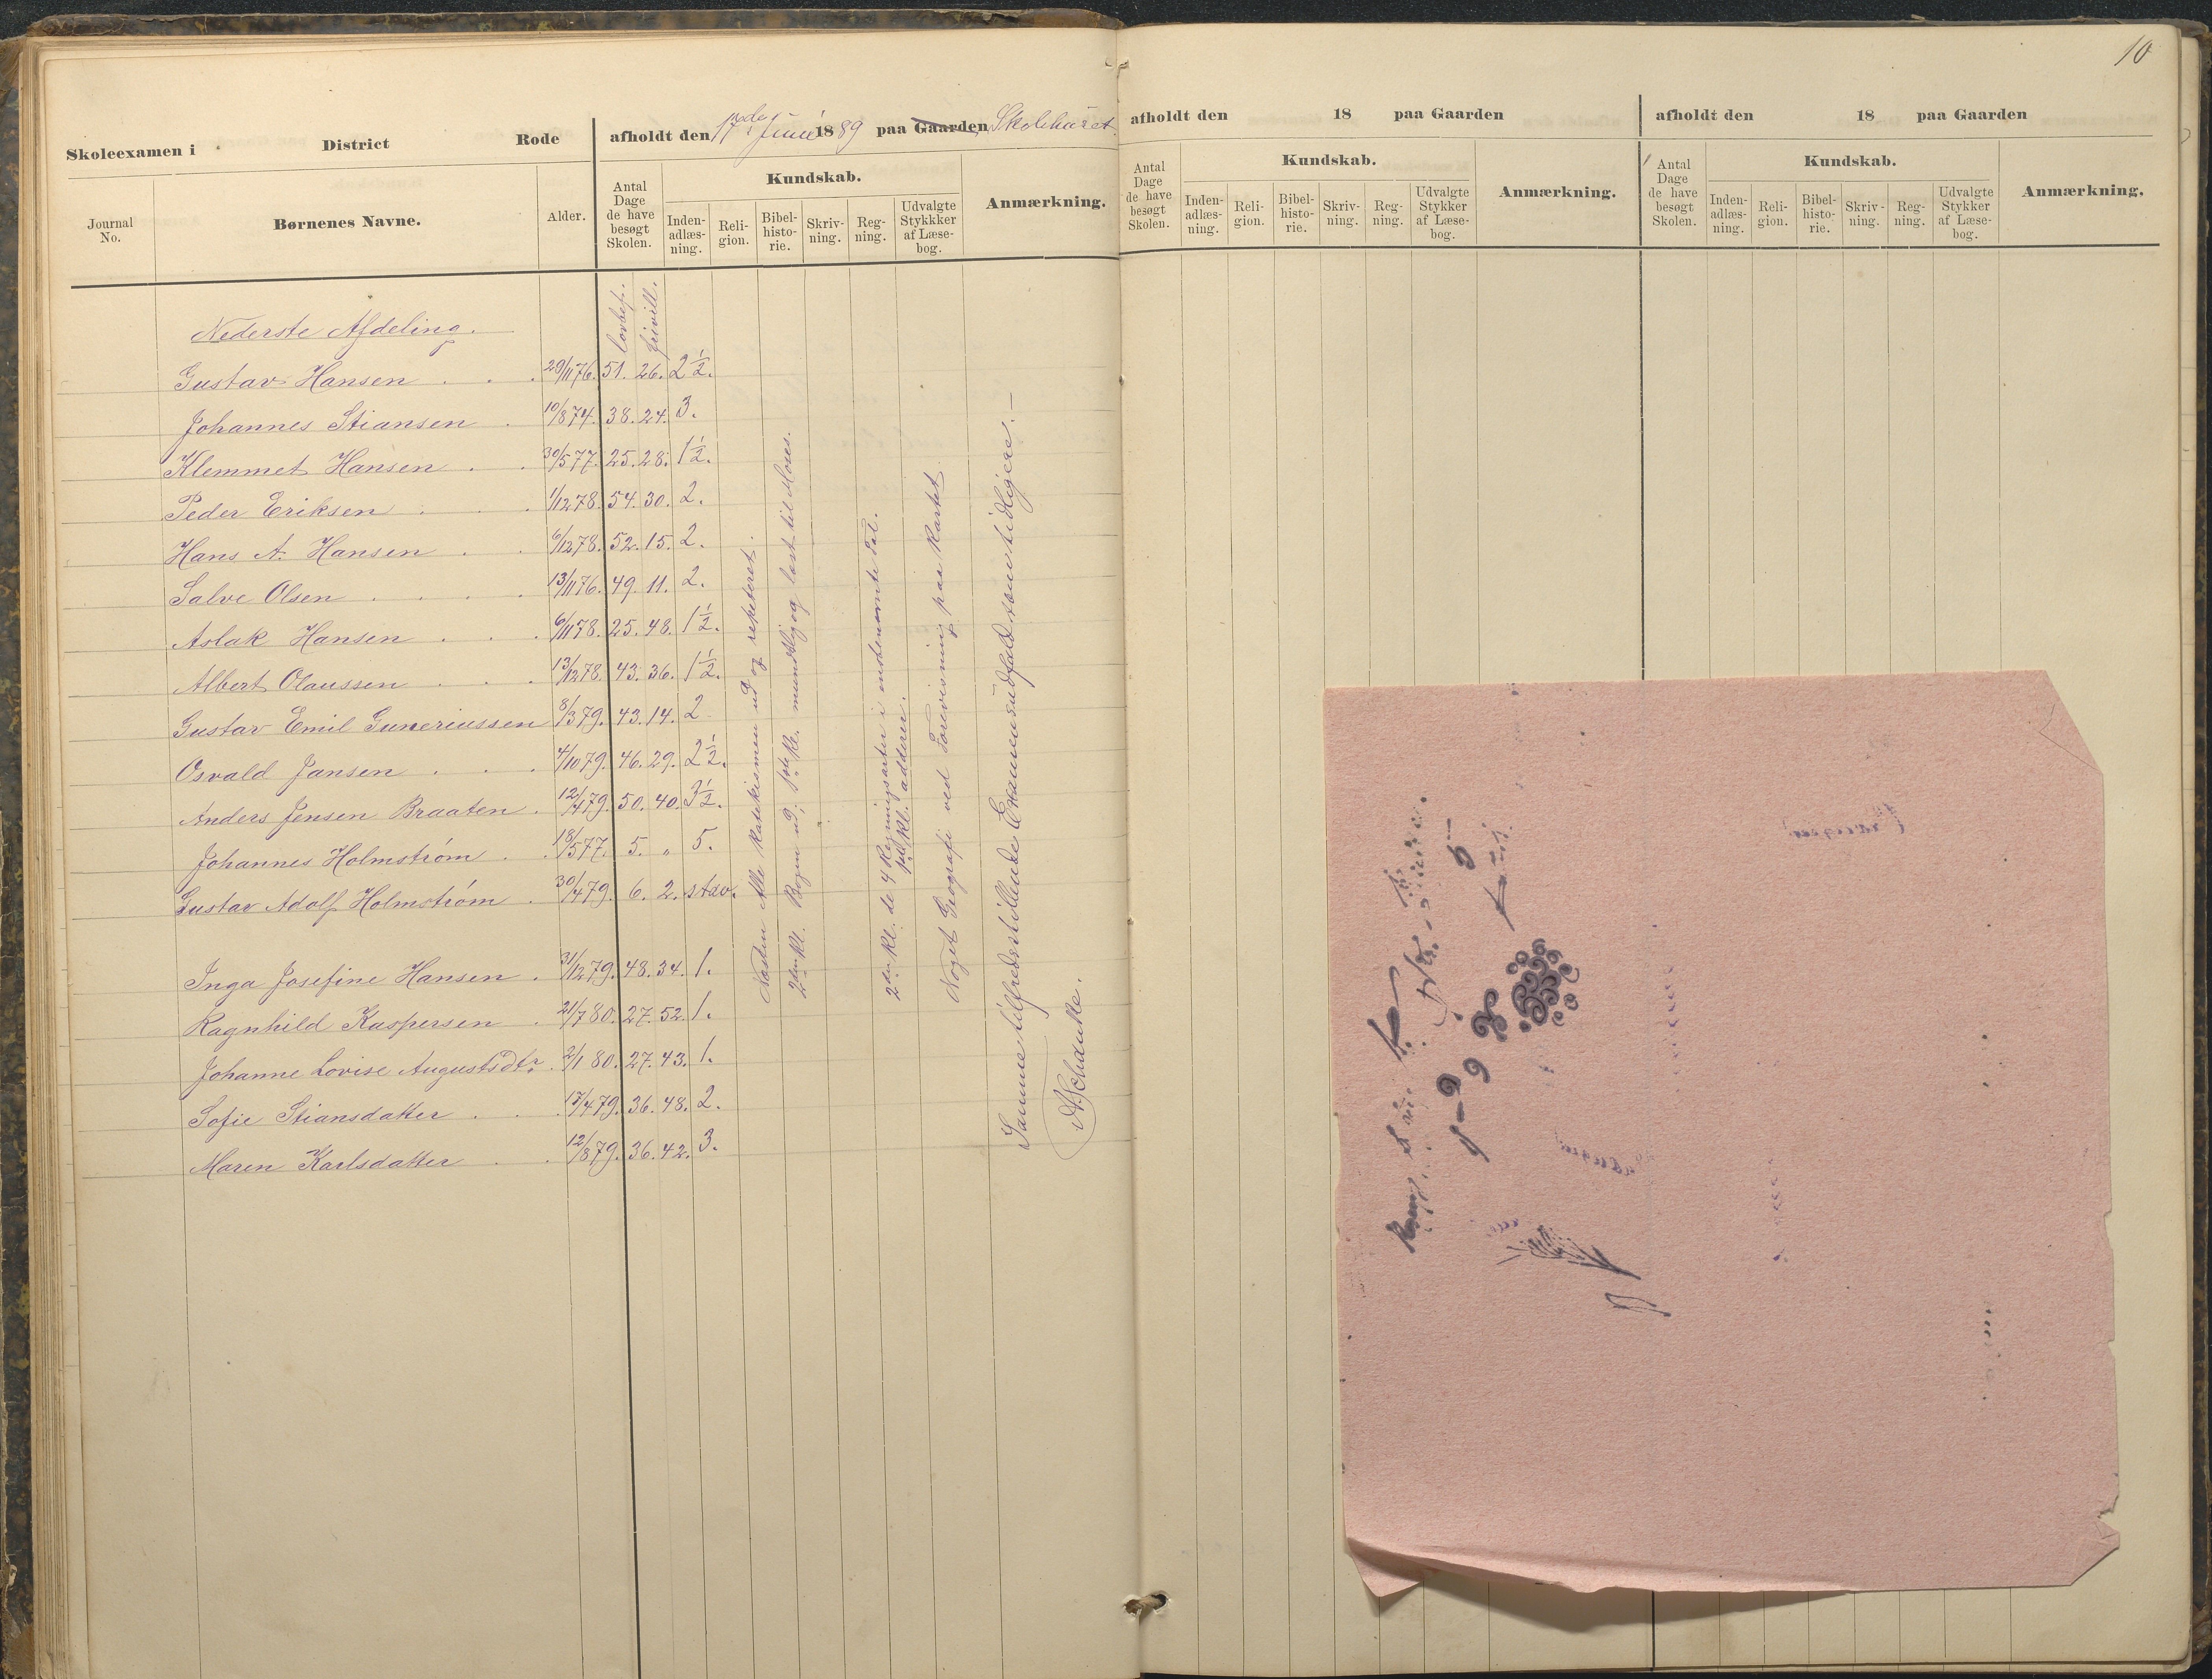 10
Skoleexamen i District Rode
afholdt den 17de Juni 1889 paa Gaarden Skolehuset
Journal No.
Børnenes Navne.
Alder.
Antal Dage de have besøgt Skolen.
Kundskab.
Inden-adlæs-ning.
Reli-gion.
Bibel-histo-rie.
Skriv-ning.
Reg-ning.
Udvalgte Stykkker af Læse-bog.
Anmærkning.
lovbef. frivill.
Nederste Afdeling.
Gustav Hansen . . . 29/11 76. 51. 26. 2½.
Johannes Stiansen . 10/8 74. 38. 24. 3.
Klemmet Hansen . . 30/5 77. 25. 28. 1½.
Peder Eriksen . . . 1/12 78. 54. 30. 2.
Hans A. Hansen . . 6/12 78. 52. 15. 2.
Salve Olsen . . . . 13/11 76. 49. 11. 2.
Aslak Hansen . . . 6/11 78. 25. 48. 1½.
Albert Olaussen . . . 13/12 78. 43. 36. 1½.
Gustav Emil Guneriussen 8/3 79. 43. 14. 2
Osvald Jansen . . . 4/10 79. 46. 29. 2½.
Anders Jensen Braaten . 12/4 79. 50. 40. 3½.
Johannes Holmstrøm . . 18/5 77. 5. „ 5.
Gustav Adolf Holmstrøm . 30/4 79. 6. 2. stav.
Inga Josefine Hansen . 31/12 79. 48. 34. 1.
Ragnhild Kaspersen . 21/7 80. 27. 52. 1.
Johanne Lovise Augustsdtr. . 2/1 80. 27. 43. 1.
Sofie Stiansdatter . . . 17/4 79. 36. 48. 2.
Maren Karlsdatter . . 12/8 79. 36. 42. 3.
Næsten Alle Katekismen ud og repeteret.
2den Kl. Bogen ud; 1ste Kl. mundtlig og læst til Moses.
2den Kl. de 4 Regningsarter i ubenævnte Tal.
1ste Kl. adderer.
Noget Geografi ved Forevisning paa Kartet
Samme tilfredsstillende Examensudfald som tidligere. –
A. Schanke.
afholdt den 18 paa Gaarden
Antal Dage de have besøgt Skolen.
Kundskab.
Inden-adlæs-ning.
Reli-gion.
Bibel-histo-rie.
Skriv-ning.
Reg-ning.
Udvalgte Stykker af Læse-bog.
Anmærkning.
afholdt den 18 paa Gaarden
Antal Dage de have besøgt Skolen.
Kundskab.
Inden-adlæs-ning.
Reli-gion.
Bibel-histo-rie.
Skriv-ning.
Reg-ning.
Udvalgte Stykker af Læse-bog.
Anmærkning.